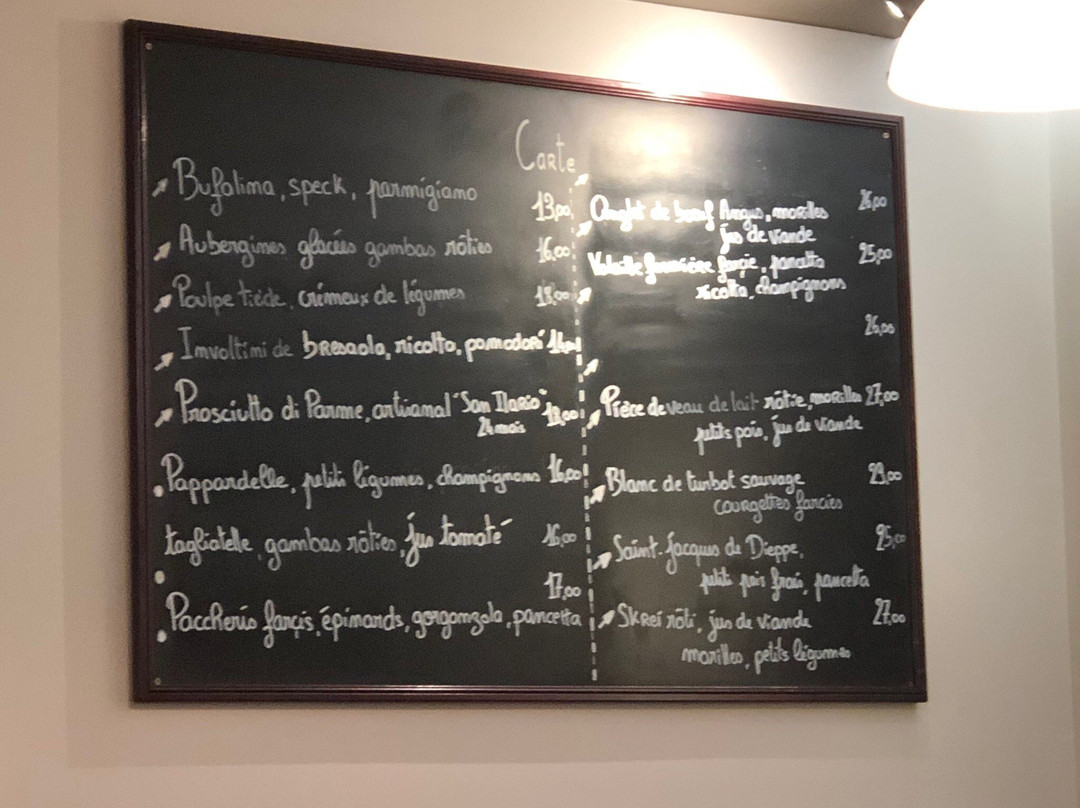 Carte
Bufalina, speck, parmigiano 13,00
Aubergines glacées gambas rôties 16,00
Poulpe tiède, crémeux de légumes
Involtini de bresaola, ricotta, pomodori
Prosciutto di Parme, artisanal "San Ilario"
24 mois
Pappardelle, petits légumes, champignons 16,00
tagliatelle, gambas rôties, jus tomaté 16,00
17,00
Paccheris farçis, épinards, gorgonzola, pancetta
Onglet de bœuf Angus, morilles 26,00
jus de viande
Volaille fermière farçie, pancetta 25,00
ricotta, champignons
26,00
Pièce de veau de lait rôtie, morilles 27,00
petits pois, jus de viande
Blanc de turbot sauvage 29,00
courgettes farcies
Saint-Jacques de Dieppe, 25,00
petit pois frais, pancetta
Skrei rôti, jus de viande 27,00
morilles, petits légumes